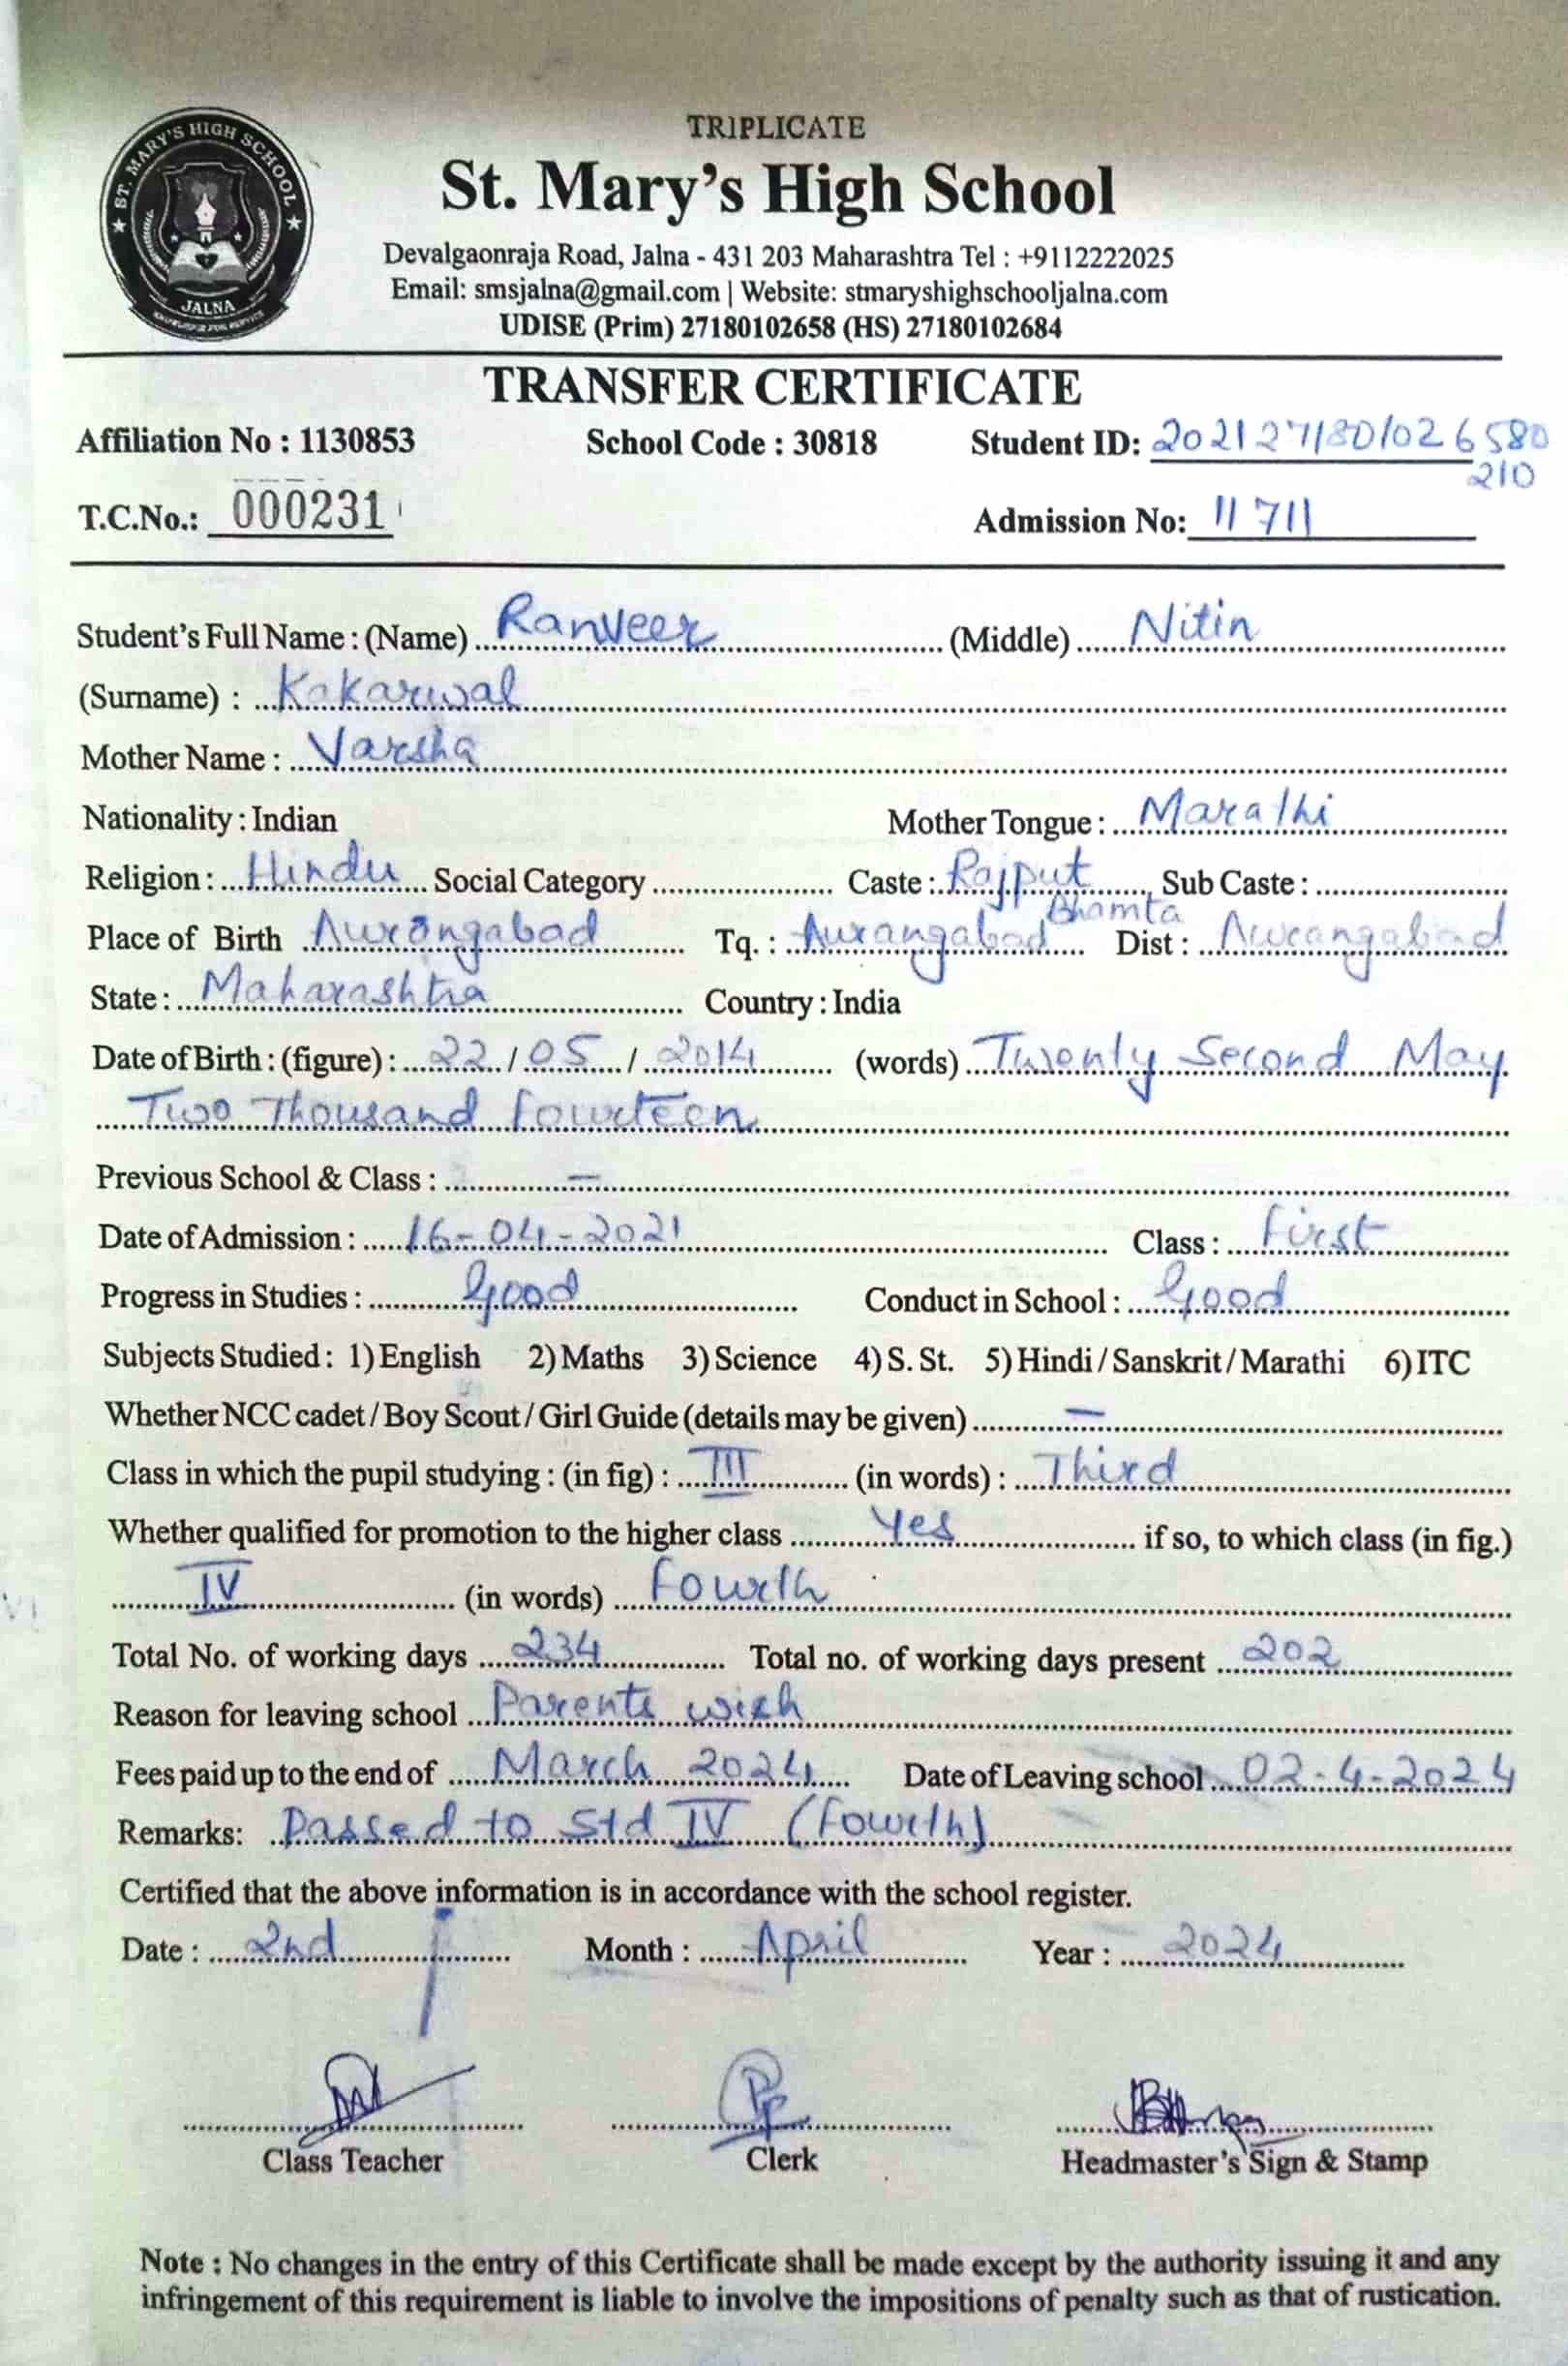 TRIPLICATE
St. Mary's High School
★ ST. MARY'S HIGH SCHOOL ★
JALNA
Devalgaonraja Road, Jalna - 431 203 Maharashtra Tel : +9112222025
Email: smsjalna@gmail.com | Website: stmaryshighschooljalna.com
UDISE (Prim) 27180102658 (HS) 27180102684
TRANSFER CERTIFICATE
Affiliation No : 1130853 School Code : 30818 Student ID: 2021 27180102 6580
210
T.C.No.: 000231 Admission No: 11711
Student's Full Name : (Name) Ranveer (Middle) Nitin
(Surname) : Kakarwal
Mother Name : Varsha
Nationality : Indian Mother Tongue : Marathi
Religion : Hindu Social Category Caste : Rajput Sub Caste :
Bhamta
Place of Birth Aurangabad Tq. : Aurangabad Dist : Aurangabad
State : Maharashtra Country : India
Date of Birth : (figure) : 22 / 05 / 2014 (words) Twenty Second May
Two Thousand Fourteen
Previous School & Class : —
Date of Admission : 16-04-2021 Class : First
Progress in Studies : Good Conduct in School : Good
Subjects Studied : 1) English 2) Maths 3) Science 4) S. St. 5) Hindi / Sanskrit / Marathi 6) ITC
Whether NCC cadet / Boy Scout / Girl Guide (details may be given) —
Class in which the pupil studying : (in fig) : III (in words) : Third
Whether qualified for promotion to the higher class Yes if so, to which class (in fig.)
IV (in words) Fourth
Total No. of working days 234 Total no. of working days present 202
Reason for leaving school Parents wish
Fees paid up to the end of March 2024 Date of Leaving school 02-4-2024
Remarks: Passed to Std IV (Fourth)
Certified that the above information is in accordance with the school register.
Date : 2nd Month : April Year : 2024
Class Teacher Clerk Headmaster's Sign & Stamp
Note : No changes in the entry of this Certificate shall be made except by the authority issuing it and any
infringement of this requirement is liable to involve the impositions of penalty such as that of rustication.